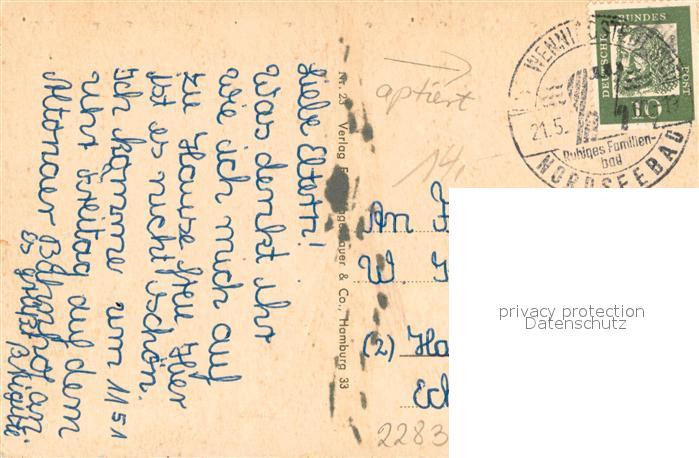 Liebe Eltern!
Was denkt ihr
wie ich mich auf
zu Hause freu, Hier
ist es nicht schön.
Ich komme um 11 51
Uhr Freitag auf dem
Altonaer Bahnhof an.
Es grüßt
Nr. 23 Verlag & Co., Hamburg 33
aptiert
14,-
An
W
(2) Ha
Eck
2283
DEUTSCHE BUNDESPOST
10
21.5.
Ruhiges Familien-
bad
NORDSEEBAD
privacy protection
Datenschutz